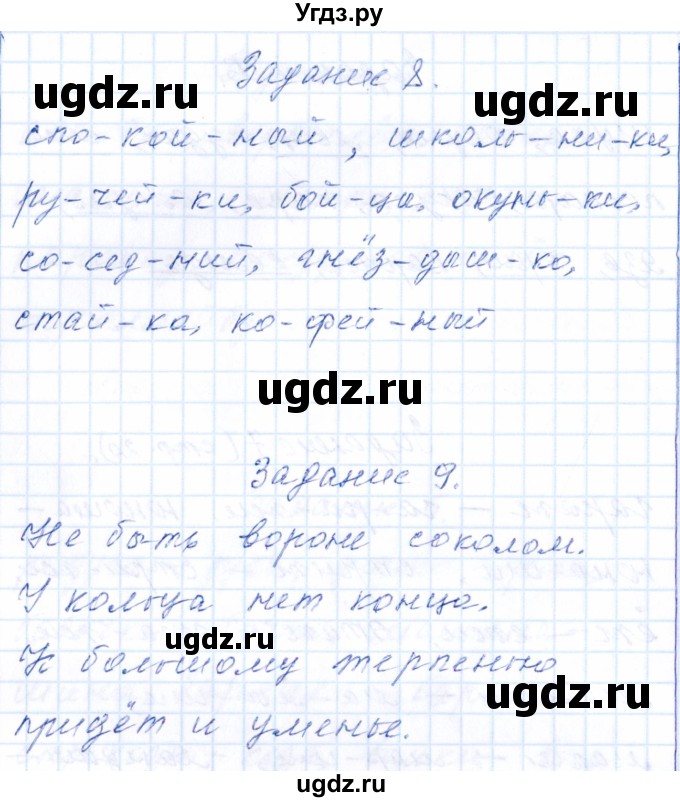 Угдз.ру
Задание 8.
ugdz.ru
ugdz.ru
спо-кой-ный, школь-ни-ки,
ру-чей-ки, бой-цы, окунь-ки,
со-сед-ний, гнёз-дыш-ко,
стай-ка, ко-фей-ный
ugdz.ru
Задание 9.
Не быть вороне соколом.
У кольца нет конца.
ugdz.ru
К большому терпенью
ugdz.ru
придёт и уменье.
ugdz.ru